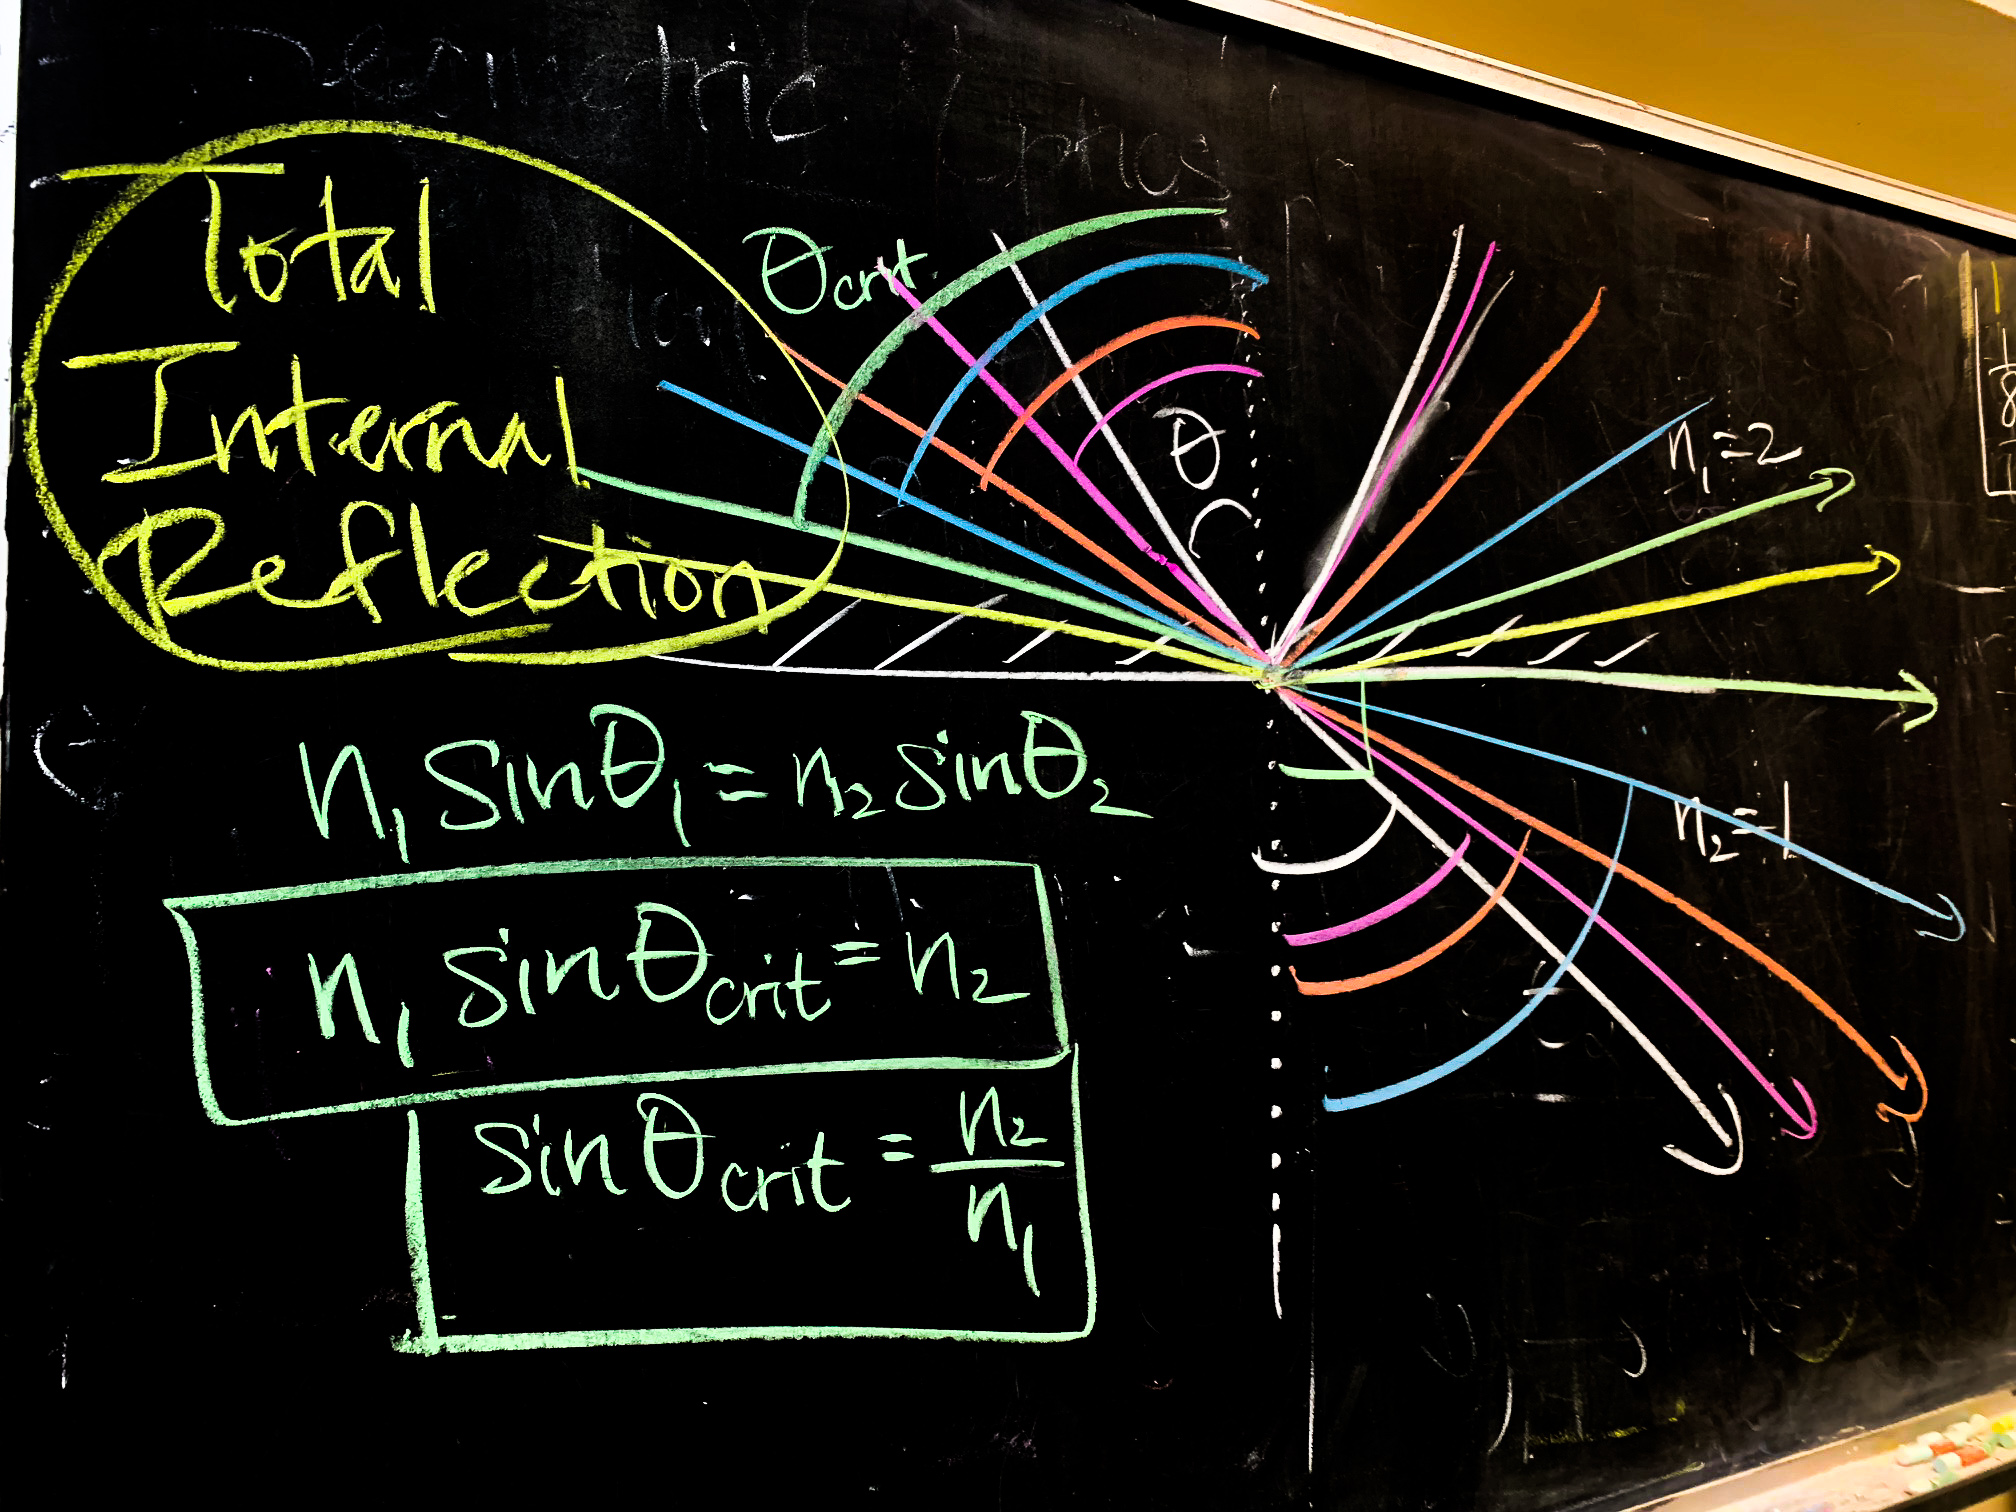 Geometric Optics
Total
Internal
Reflection
θcrit
θ
n₁=2
n₂=1
n₁ sinθ₁ = n₂ sinθ₂
n₁ sinθcrit = n₂
sinθcrit = n₂/n₁